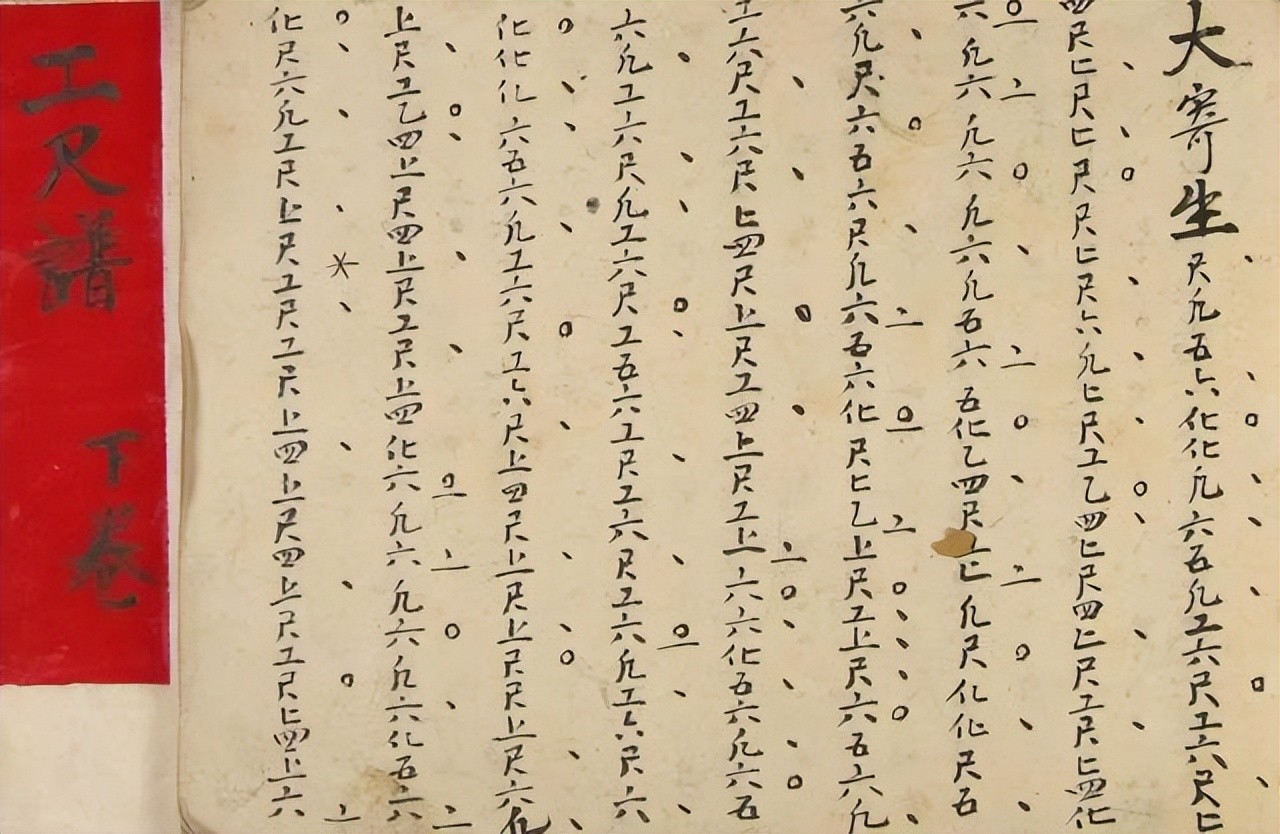 大寄生尺凡五六化化凡六五凡工六尺工六尺上
四尺上尺上尺尺上尺六凡上尺工乙四上尺四上尺工尺上四化
六凡六凡六凡六凡五六五化乙四尺上上凡尺化化尺五
六凡尺六五六尺凡六五六化尺上乙上尺工上尺六五六凡
工六尺工六尺上四尺上尺工四上尺工上六六化五六凡六五
六凡工六尺凡工六尺工五六工尺工六尺工六凡工六尺六
化化化六五六凡工六尺工六尺上四尺上尺上尺尺上尺六凡
上尺工乙四上尺四上尺工尺上四化六凡六凡六凡六化五六
化尺六凡工尺上尺工尺工尺上四上尺四上尺工尺上四上六
工尺譜 下卷